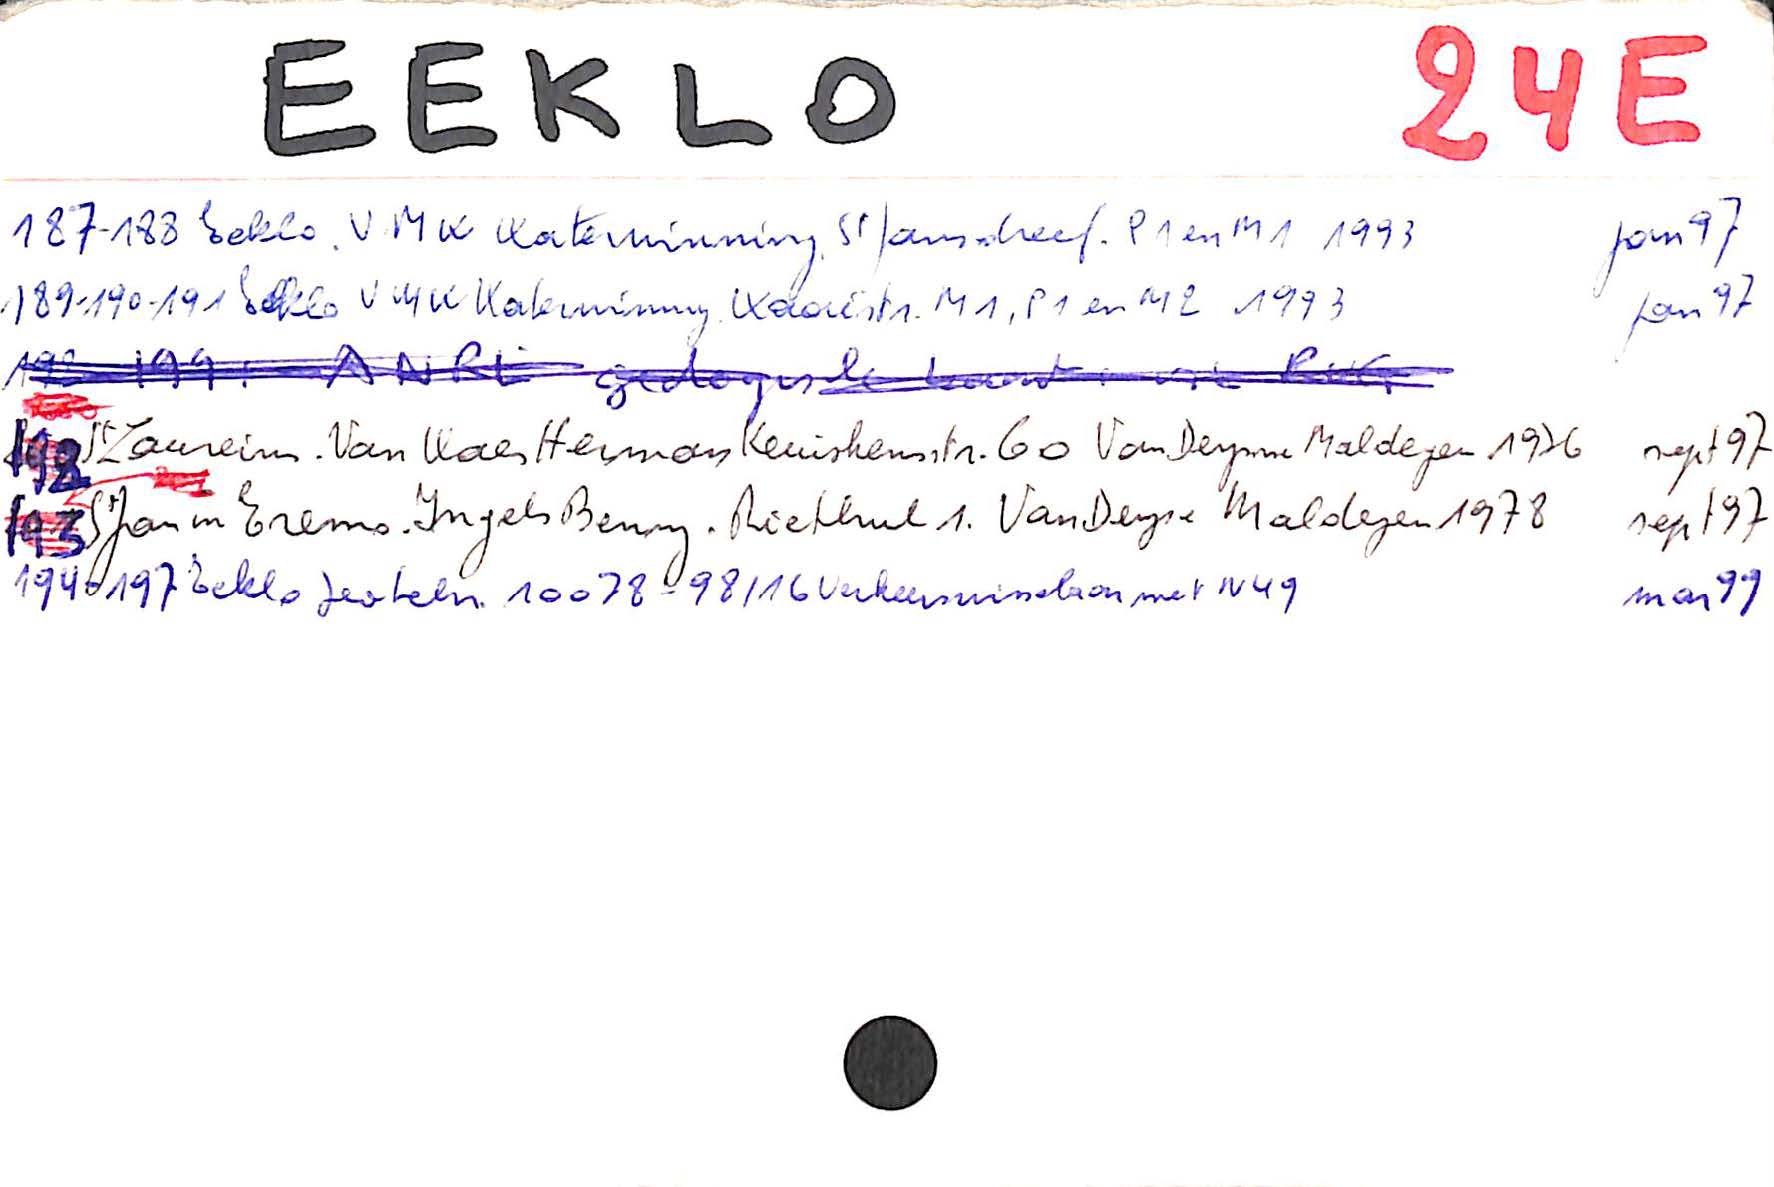 EEKLO 24E
187-188 Eeklo. VMW Waterwinning, St Jansdreef. P1 en M1 1993 jan 97
189-190-191 Eeklo VMW Waterwinning M1, P1 en M2 1993 jan 97
ANRE geologische
192 St Laureins. Van Waes Herman 60 Van Deynse Maldegem 1976 sept 97
193 St Jan in Eremo. Ingels Benny. Riethul 1. Van Deynse Maldegem 1978 sept 97
194-197 Eeklo 10078-98/16 Verkeerswisselaar met N49 99